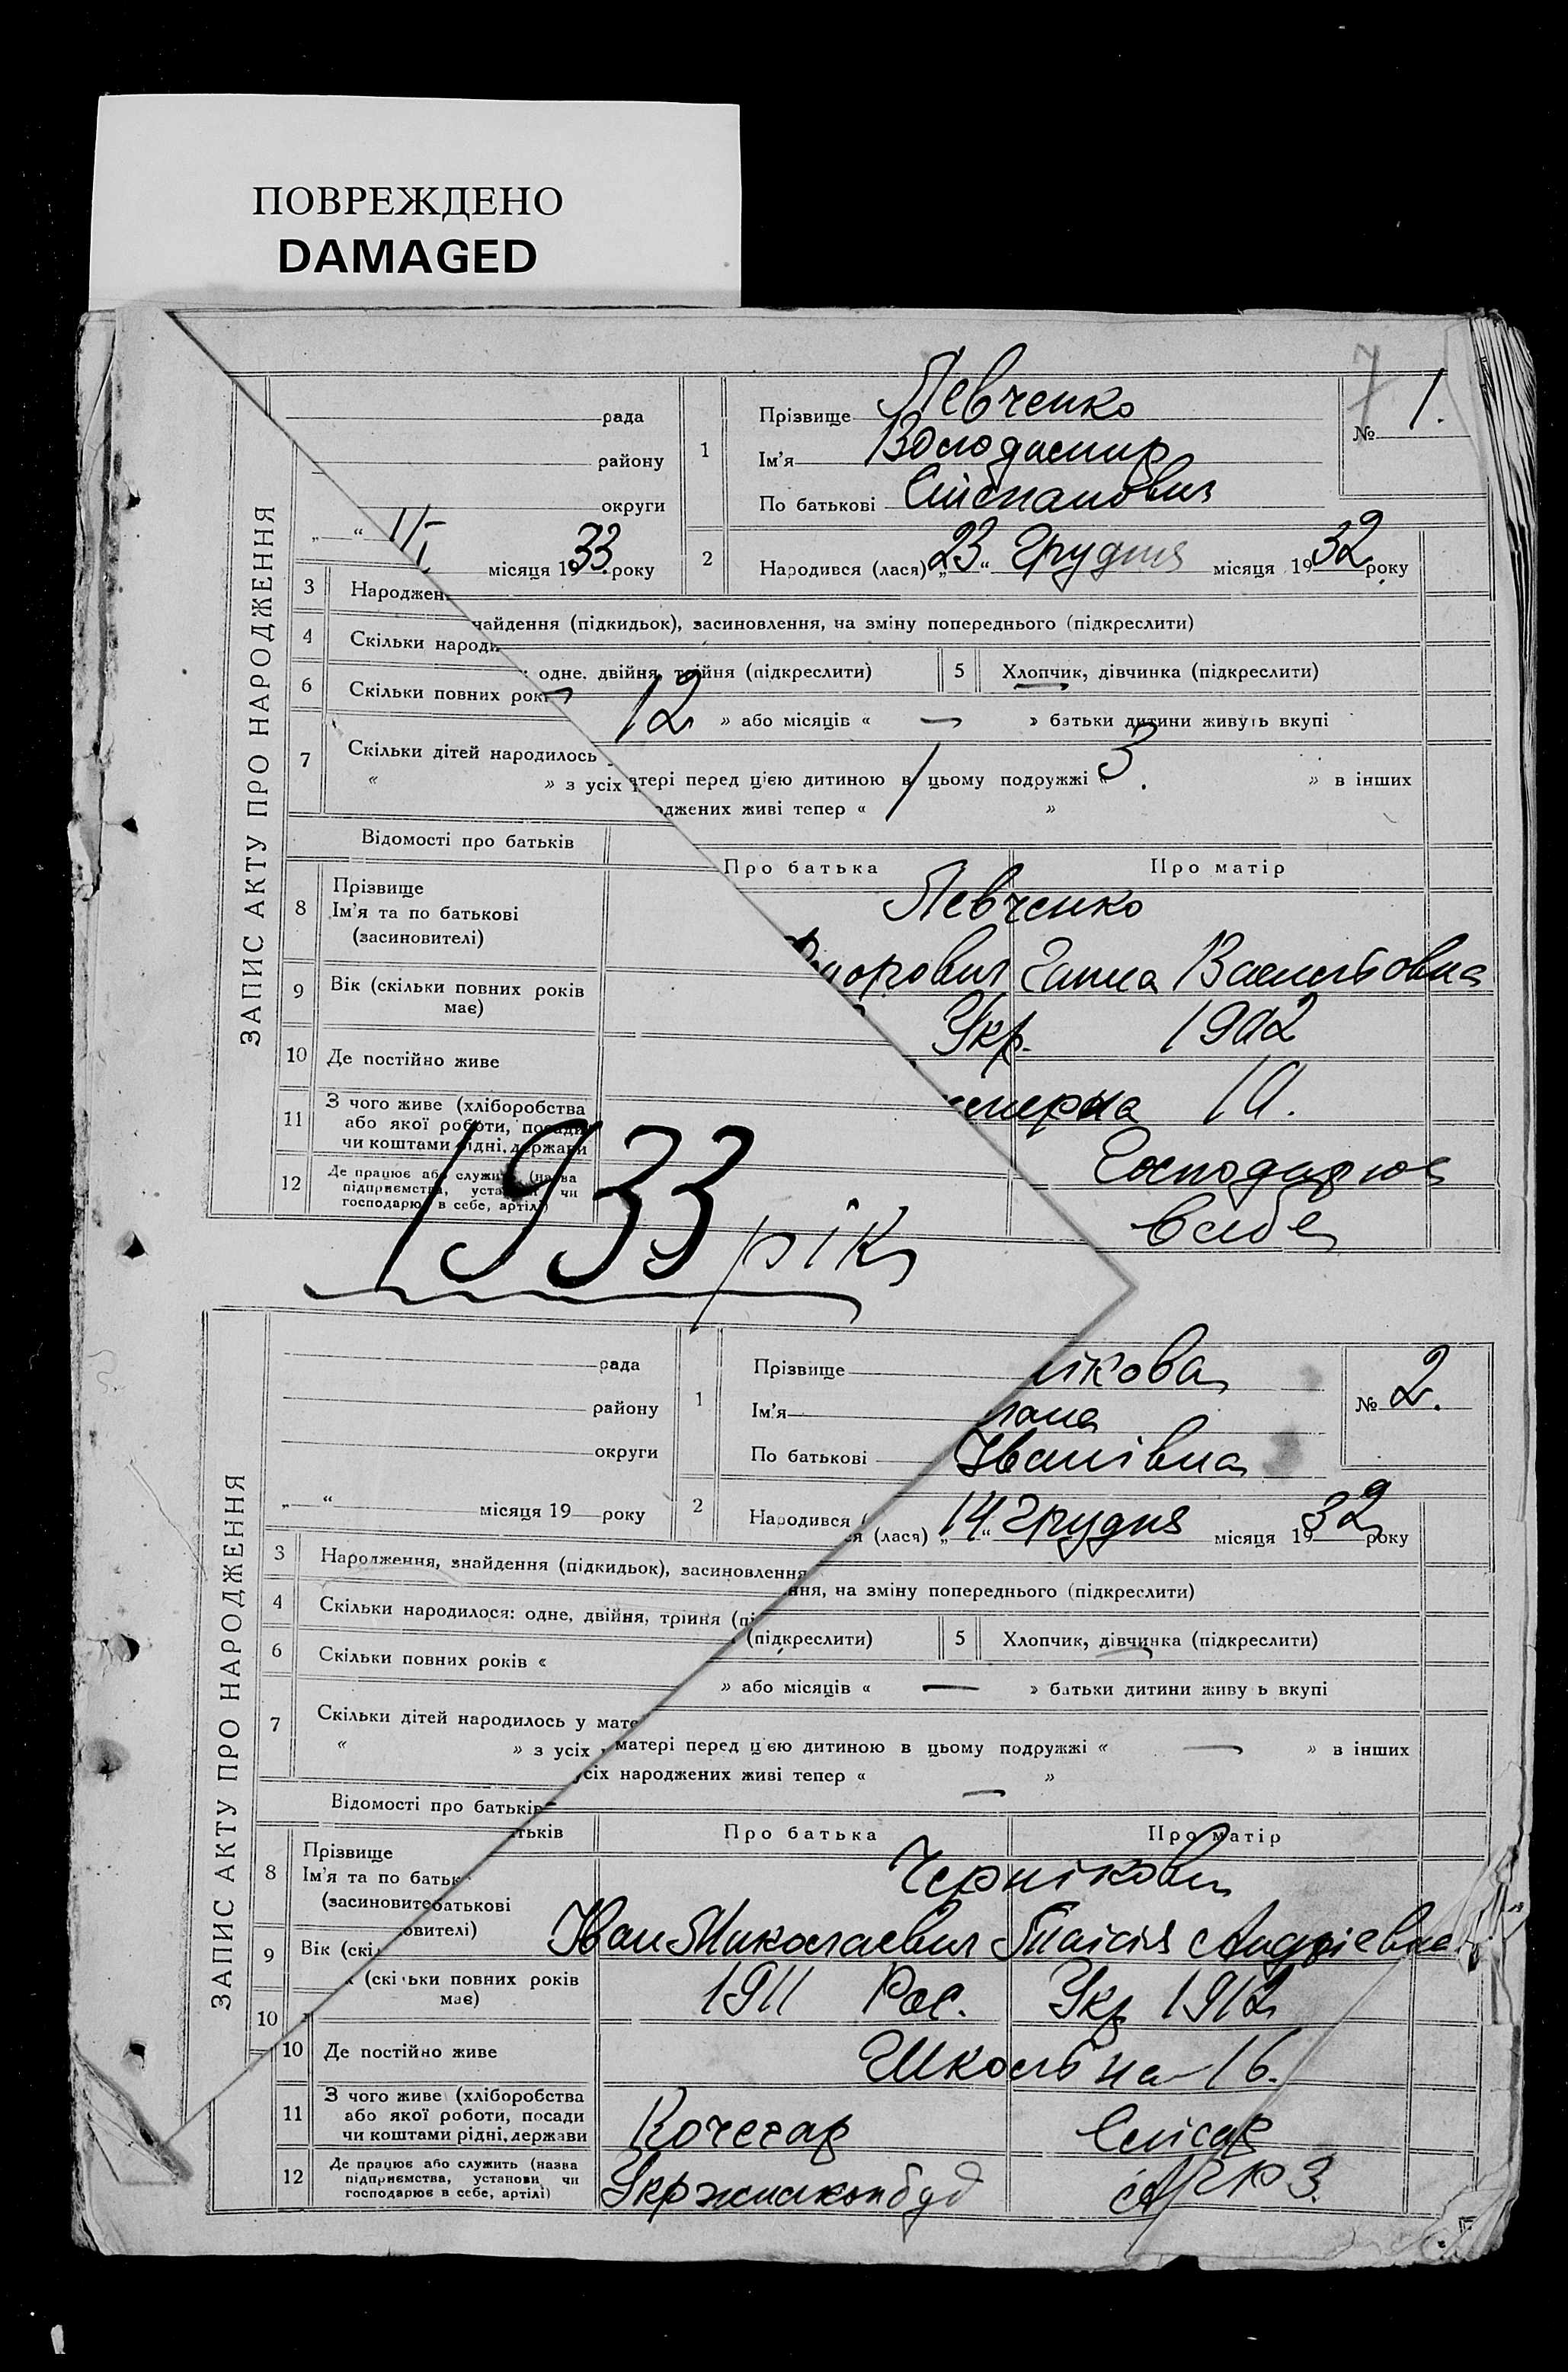 ПОВРЕЖДЕНО
DAMAGED
ЗАПИС АКТУ ПРО НАРОДЖЕННЯ
рада
району
округи
„ “ 1/I місяця 1933 року
1 Прізвище Левченко
Ім'я Володимир
По батькові Степанович
№ 1.
2 Народився (лася) „23“ Грудня місяця 1932 року
3 Народжен
найдення (підкидьок), засиновлення, на зміну попереднього (підкреслити)
4 Скільки народи
: одне, двійня, трійня (підкреслити) 5 Хлопчик, дівчинка (підкреслити)
6 Скільки повних рокі 12 » або місяців « — » батьки дитини живуть вкупі
7 Скільки дітей народилось
матері перед цією дитиною в цьому подружжі « 3. » в інших
« » з усіх
оджених живі тепер « »
Відомості про батьків
Про батька Про матір
8 Прізвище
Ім'я та по батькові
(засиновителі)
Левченко
Ганна Василівна
9 Вік (скільки повних років
має)
Укр. 1902
10 Де постійно живе
10.
11 З чого живе (хліборобства
або якої роботи, посади
чи коштами рідні, держави
Господарює
12 Де працює або служить (назва
підприємства, установи чи
господарює в себе, артілі)
в себе
1933 рік
ЗАПИС АКТУ ПРО НАРОДЖЕННЯ
рада
району
округи
„ “ місяця 19 року
1 Прізвище нікова
Ім'я
По батькові Іванівна
№ 2.
2 Народився (
ся (лася) „14“ Грудня місяця 1932 року
3 Народження, знайдення (підкидьок), засиновлення
ння, на зміну попереднього (підкреслити)
4 Скільки народилося: одне, двійня, трійня (пі
(підкреслити) 5 Хлопчик, дівчинка (підкреслити)
6 Скільки повних років «
» або місяців « — » батьки дитини живу ь вкупі
7 Скільки дітей народилось у мате
матері перед цією дитиною в цьому подружжі « — » в інших
« » з усіх
усіх народжених живі тепер « — »
Відомості про батьків
тьків Про батька Про матір
8 Прізвище
Ім'я та по батьк
(засиновите
батькові
овителі)
Чернікови
Іван Миколаевич Таісія Андріевна
9 Вік (скі
(скільки повних років
має)
1911 Рос. Укр 1912
10
10 Де постійно живе Шкільна 16.
11 З чого живе (хліборобства
або якої роботи, посади
чи коштами рідні, держави
Кочегар Слісар
12 Де працює або служить (назва
підприємства, установи чи
господарює в себе, артілі)